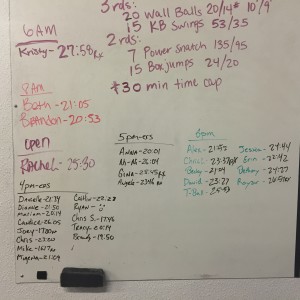 3 rds:
20 Wall Balls 20/14# 10'/9'
15 KB Swings 53/35
2 rds:
7 Power Snatch 135/95
15 Box Jumps 24/20
+30 min time cap
6AM
Kristy - 27:58 Rx
8AM
Beth - 21:05
Brandon - 20:53
open
RACHEL - 25:30
4pm-ers
Danielle - 21:14
Dionne - 21:50
Mariam - 20:14
Candice - 26:05
Joey - 17:80
Chris - 23:20
Mike - 16:17
Migena - 21:09
Caitlin - 22:28
Ryan -
Chris S. - 17:46
Tracy - 20:14
Brandy - 19:50
5pm-ers
Anna - 20:01
Ah-Ah - 26:04
Gina - 25:45 Rx
Angela - 23:46 Rx
6pm
Alex - 21:52
Chris L - 23:37 Rx
Becky - 21:04
David - 23:27
T-Bull - 25:53
Jessica - 24:44
Erin - 22:42
Bethany - 24:27